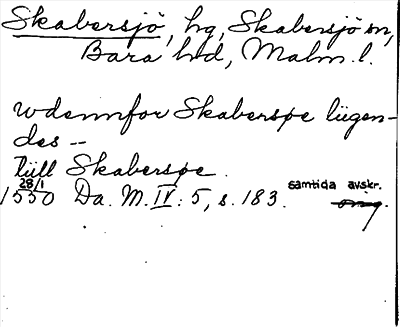 Skabersjö, hg, Skabersjö sn,
Bara hd, Malm. l.
wdennfor Skaberspe liigen-
des --
tiill Skaberspe.
28/1
1550 Da. M. IV: 5, s. 183. samtida avskr.
orig.